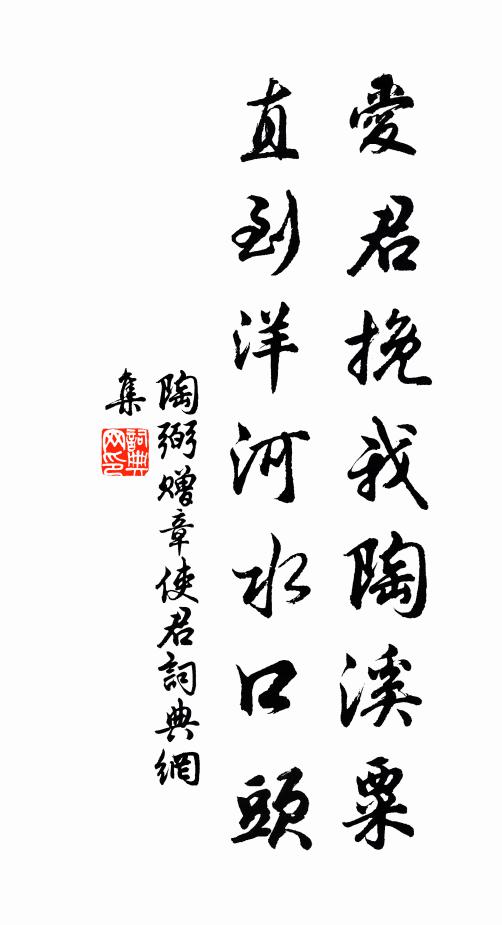 愛君挽我陶溪粟
直到洋河水口頭
陶弼贈章使君詞典網
集
詞典
网印